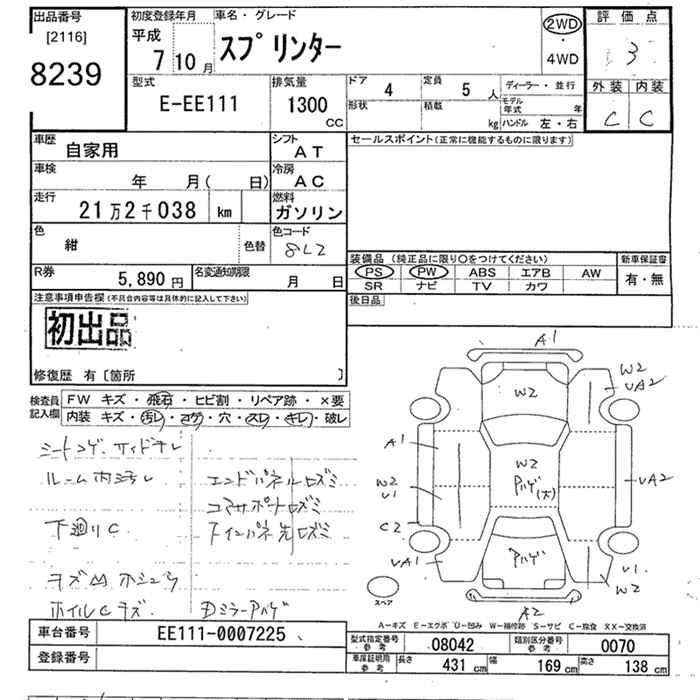 出品番号
[2116]
8239
初度登録年月
平成
7 10 月
車名・グレード
スプリンター
2WD
・
4WD
評価点
3
外装 内装
C C
型式
E-EE111
排気量
1300
CC
ドア
4
定員
5 人
形状
積載
kg
ディーラー・並行
モデル年式 年
ハンドル 左・右
車歴
自家用
シフト
AT
車検
年 月( 日)
冷房
AC
走行
21万2千038 km
燃料
ガソリン
色
紺
色替
色コード
8L2
R券
5,890 円
名変通知期限
月 日
セールスポイント(正常に機能するものに限ります)
装備品 (純正品に限り○をつけてください)
PS PW ABS エアB AW
SR ナビ TV カワ
新車保証書
有・無
後日品
注意事項申告欄(不具合内容等は具体的に記入して下さい)
初出品
修復歴 有〔箇所 〕
検査員記入欄
FW キズ・飛石・ヒビ割・リペア跡・×要
内装 キズ・汚レ・コゲ・穴・スレ・キレ・破レ
シートコゲ、サイドキレ
ルーム内汚レ
エンドパネルヒズミ
コアサポートヒズミ
下廻りC
インパネ先ヒズミ
キズ凹ホシュウ
ホイルCキズ
Dミラーアハゲ
A1
W2
W2
UA2
A1
W2
U1
W2
アハゲ(大)
UA2
C2
UA1
アハゲ
U1
W2
A2
スペア
A－キズ E－エクボ U－凹み W－補修跡 S－サビ C－腐食 XX－交換済
車台番号
EE111-0007225
登録番号
型式指定番号
参考
08042
類別区分番号
参考
0070
車庫証明用
参考
長さ
431 cm
幅
169 cm
高さ
138 cm